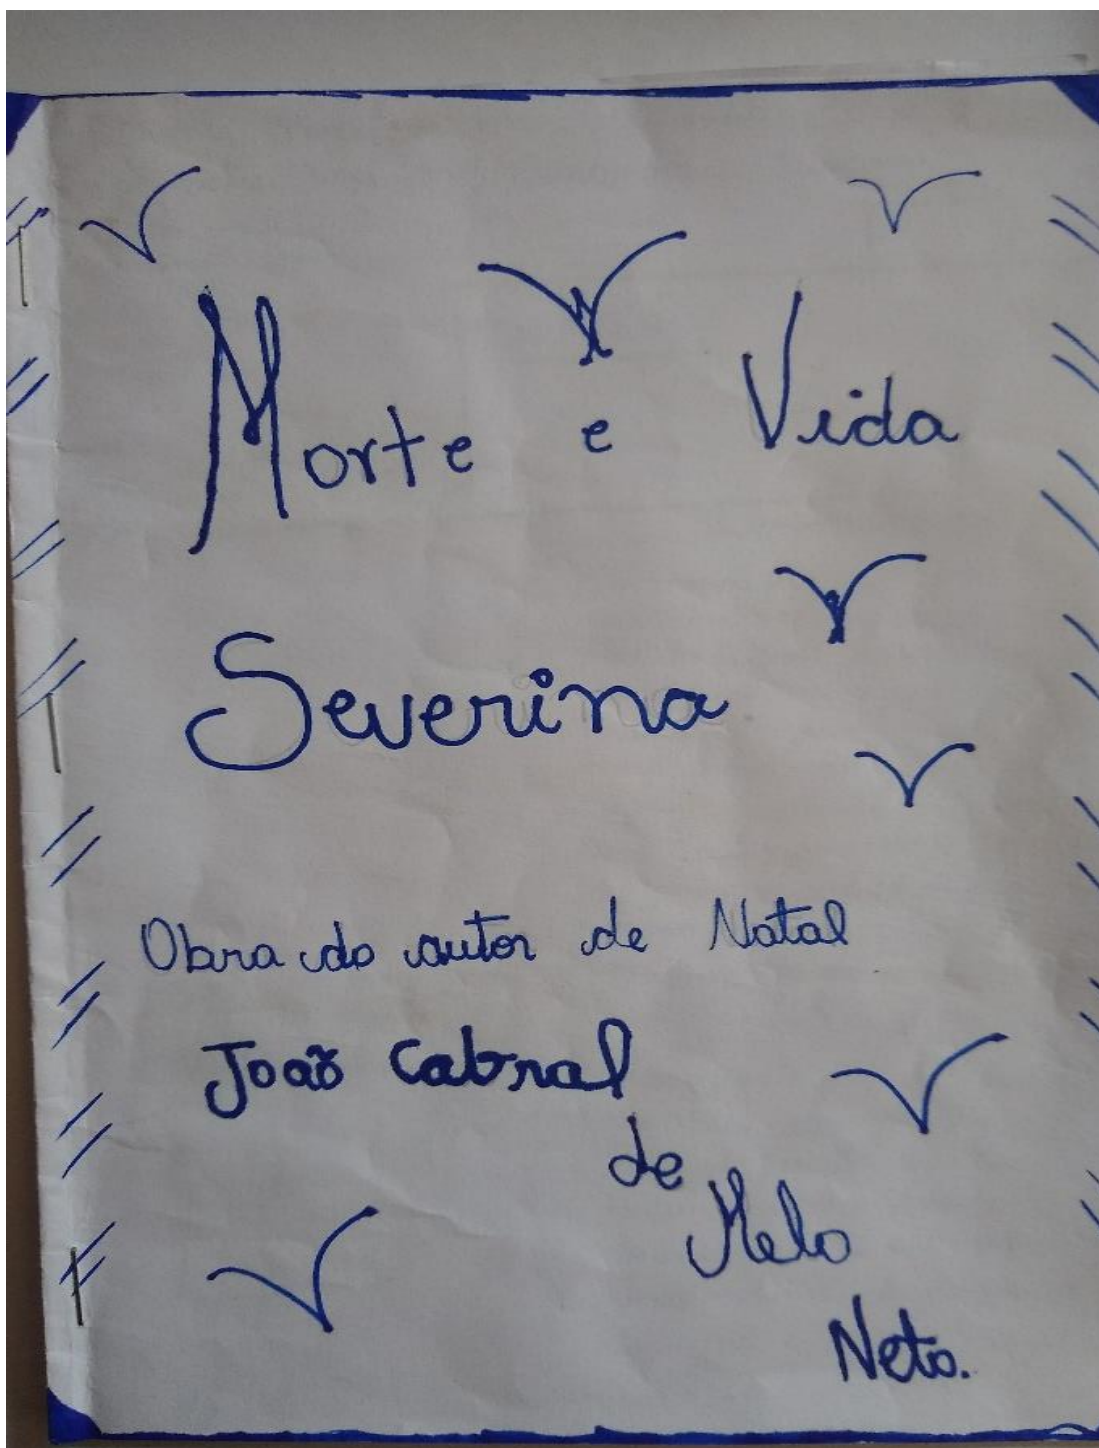 Morte e Vida
Severina
Obra do autor de Natal
João Cabral
de
Melo
Neto.